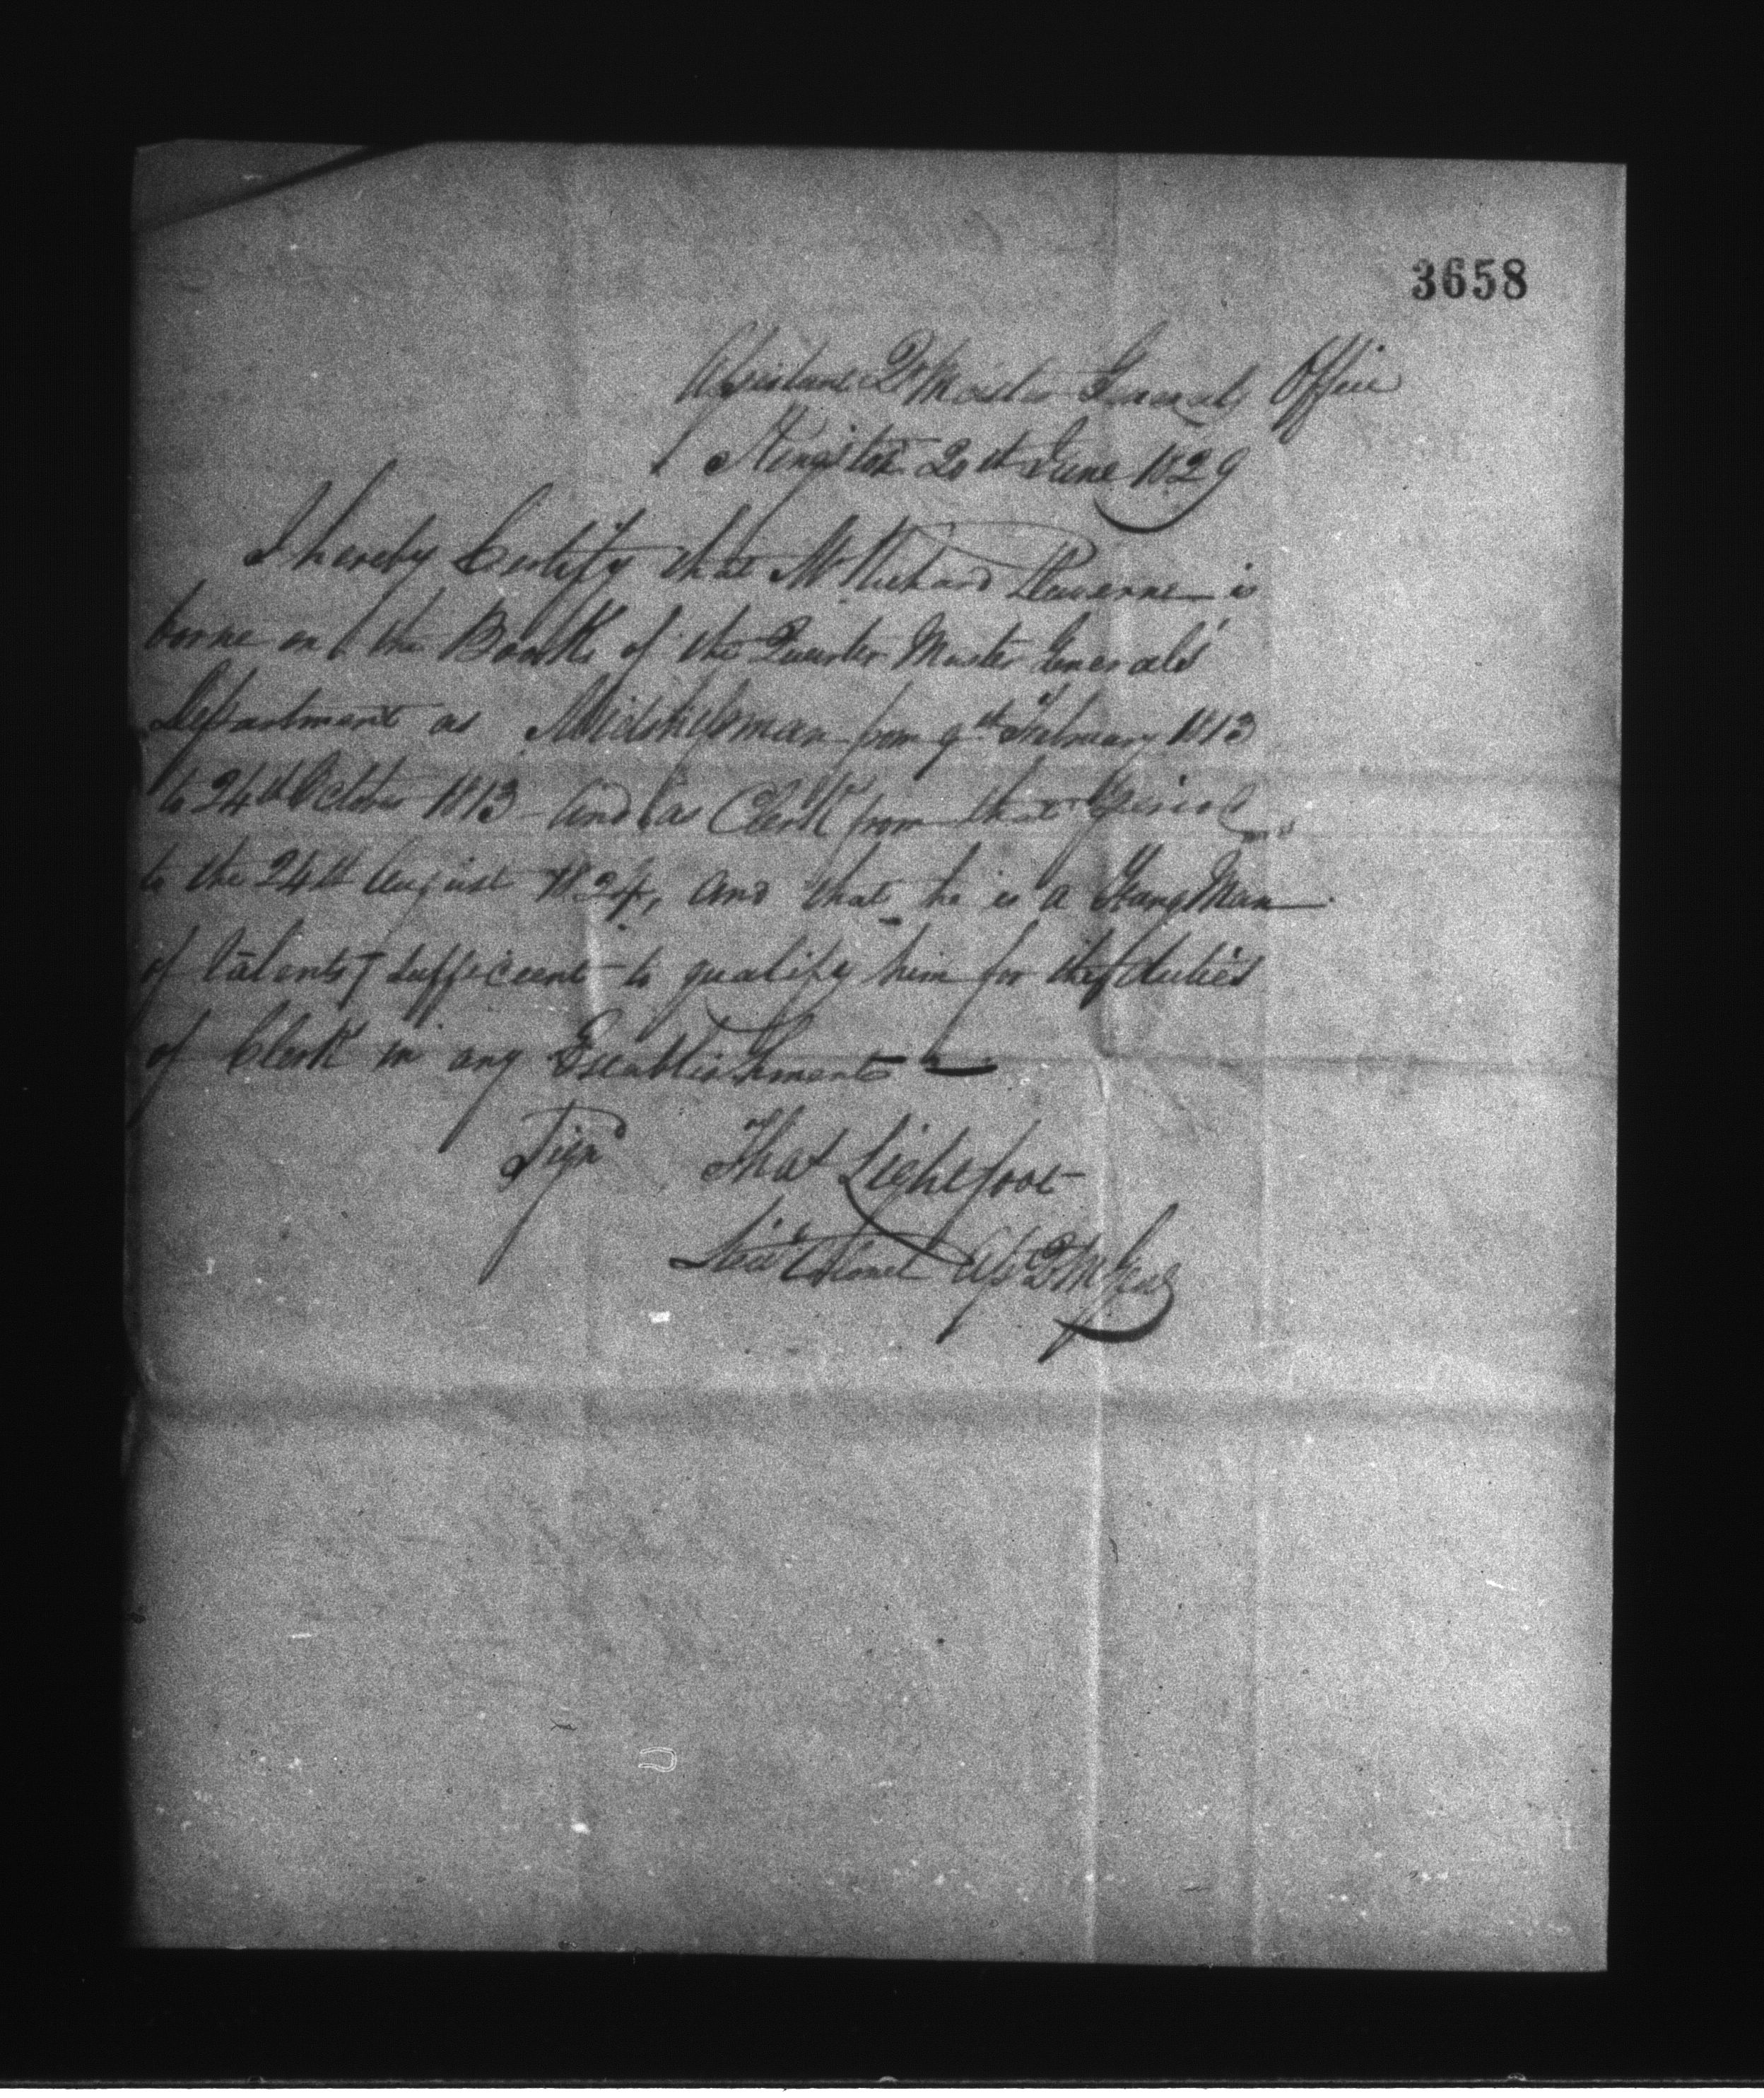 3658
Assistant Qr Master Generals Office
Kingston 20th June 1829
I hereby Certify that Mr Richard Raverne is
borne on the Books of the Quarter Master Generals'
Department as Midshipman from 9th February 1813
to 24th October 1813 - And as Clerk from that Period
to the 24th August 1824, and that he is a Young Man
of talents sufficient to qualify him for the duties
of Clerk in any Establishment —
Signd Thos Lightfoot
Lieut Colonel Ast Q M Genl